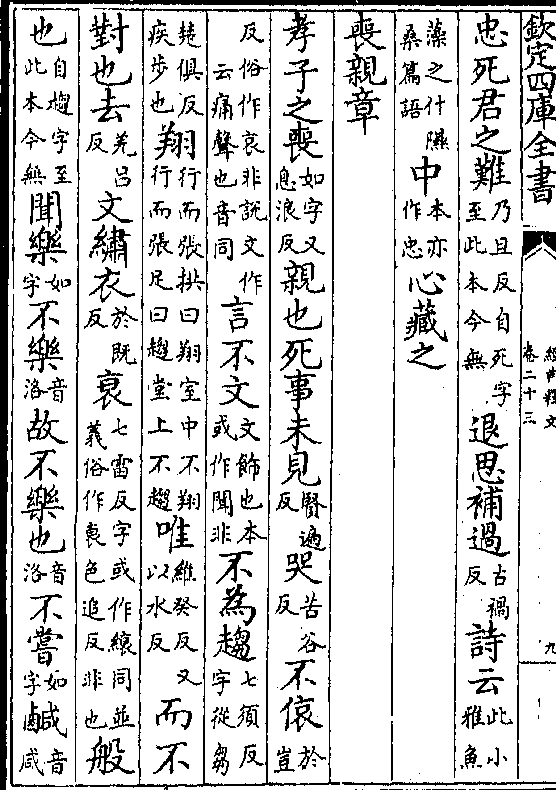 欽定四庫全書
經典釋文
卷二十三
九
忠死君之難乃旦反自死字至此本今無退思補過古禍反詩云此小雅魚
藻之什隰桑篇語中本亦作忠心藏之
喪親章
孝子之喪如字又息浪反親也死事未見賢遍反哭苦谷反不偯於豈
反俗作哀非說文作云痛聲也音同言不文文飾也本或作聞非不為趨七須反字從芻
楚俱反疾步也翔行而張拱曰翔室中不翔行而張足曰趨堂上不趨唯維癸反又以水反而不
對也去羌呂反文繡衣於既反衰七雷反字或作縗同並義俗作色追反非也般
也自趨字至此本今無聞樂如字不樂音洛故不樂也音洛不嘗如字鹹音咸